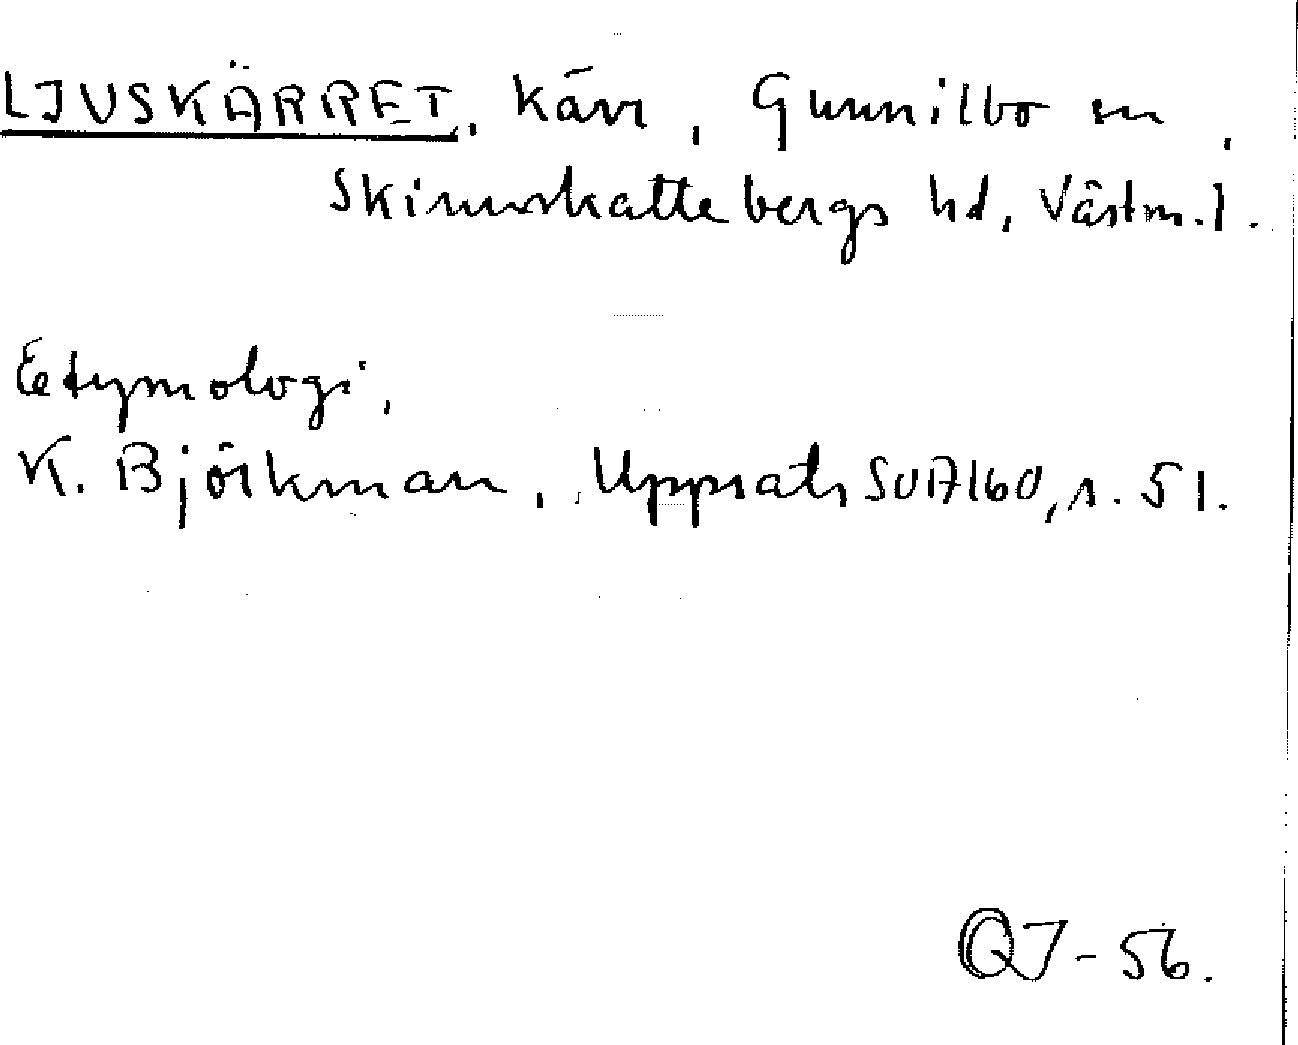 LJUSKÄRRET, kärr, Gunnilbo sn,
Skinnskattebergs hd, Västm.l.
Etymologi,
K. Björkman, Uppsats SOA160, s. 51.